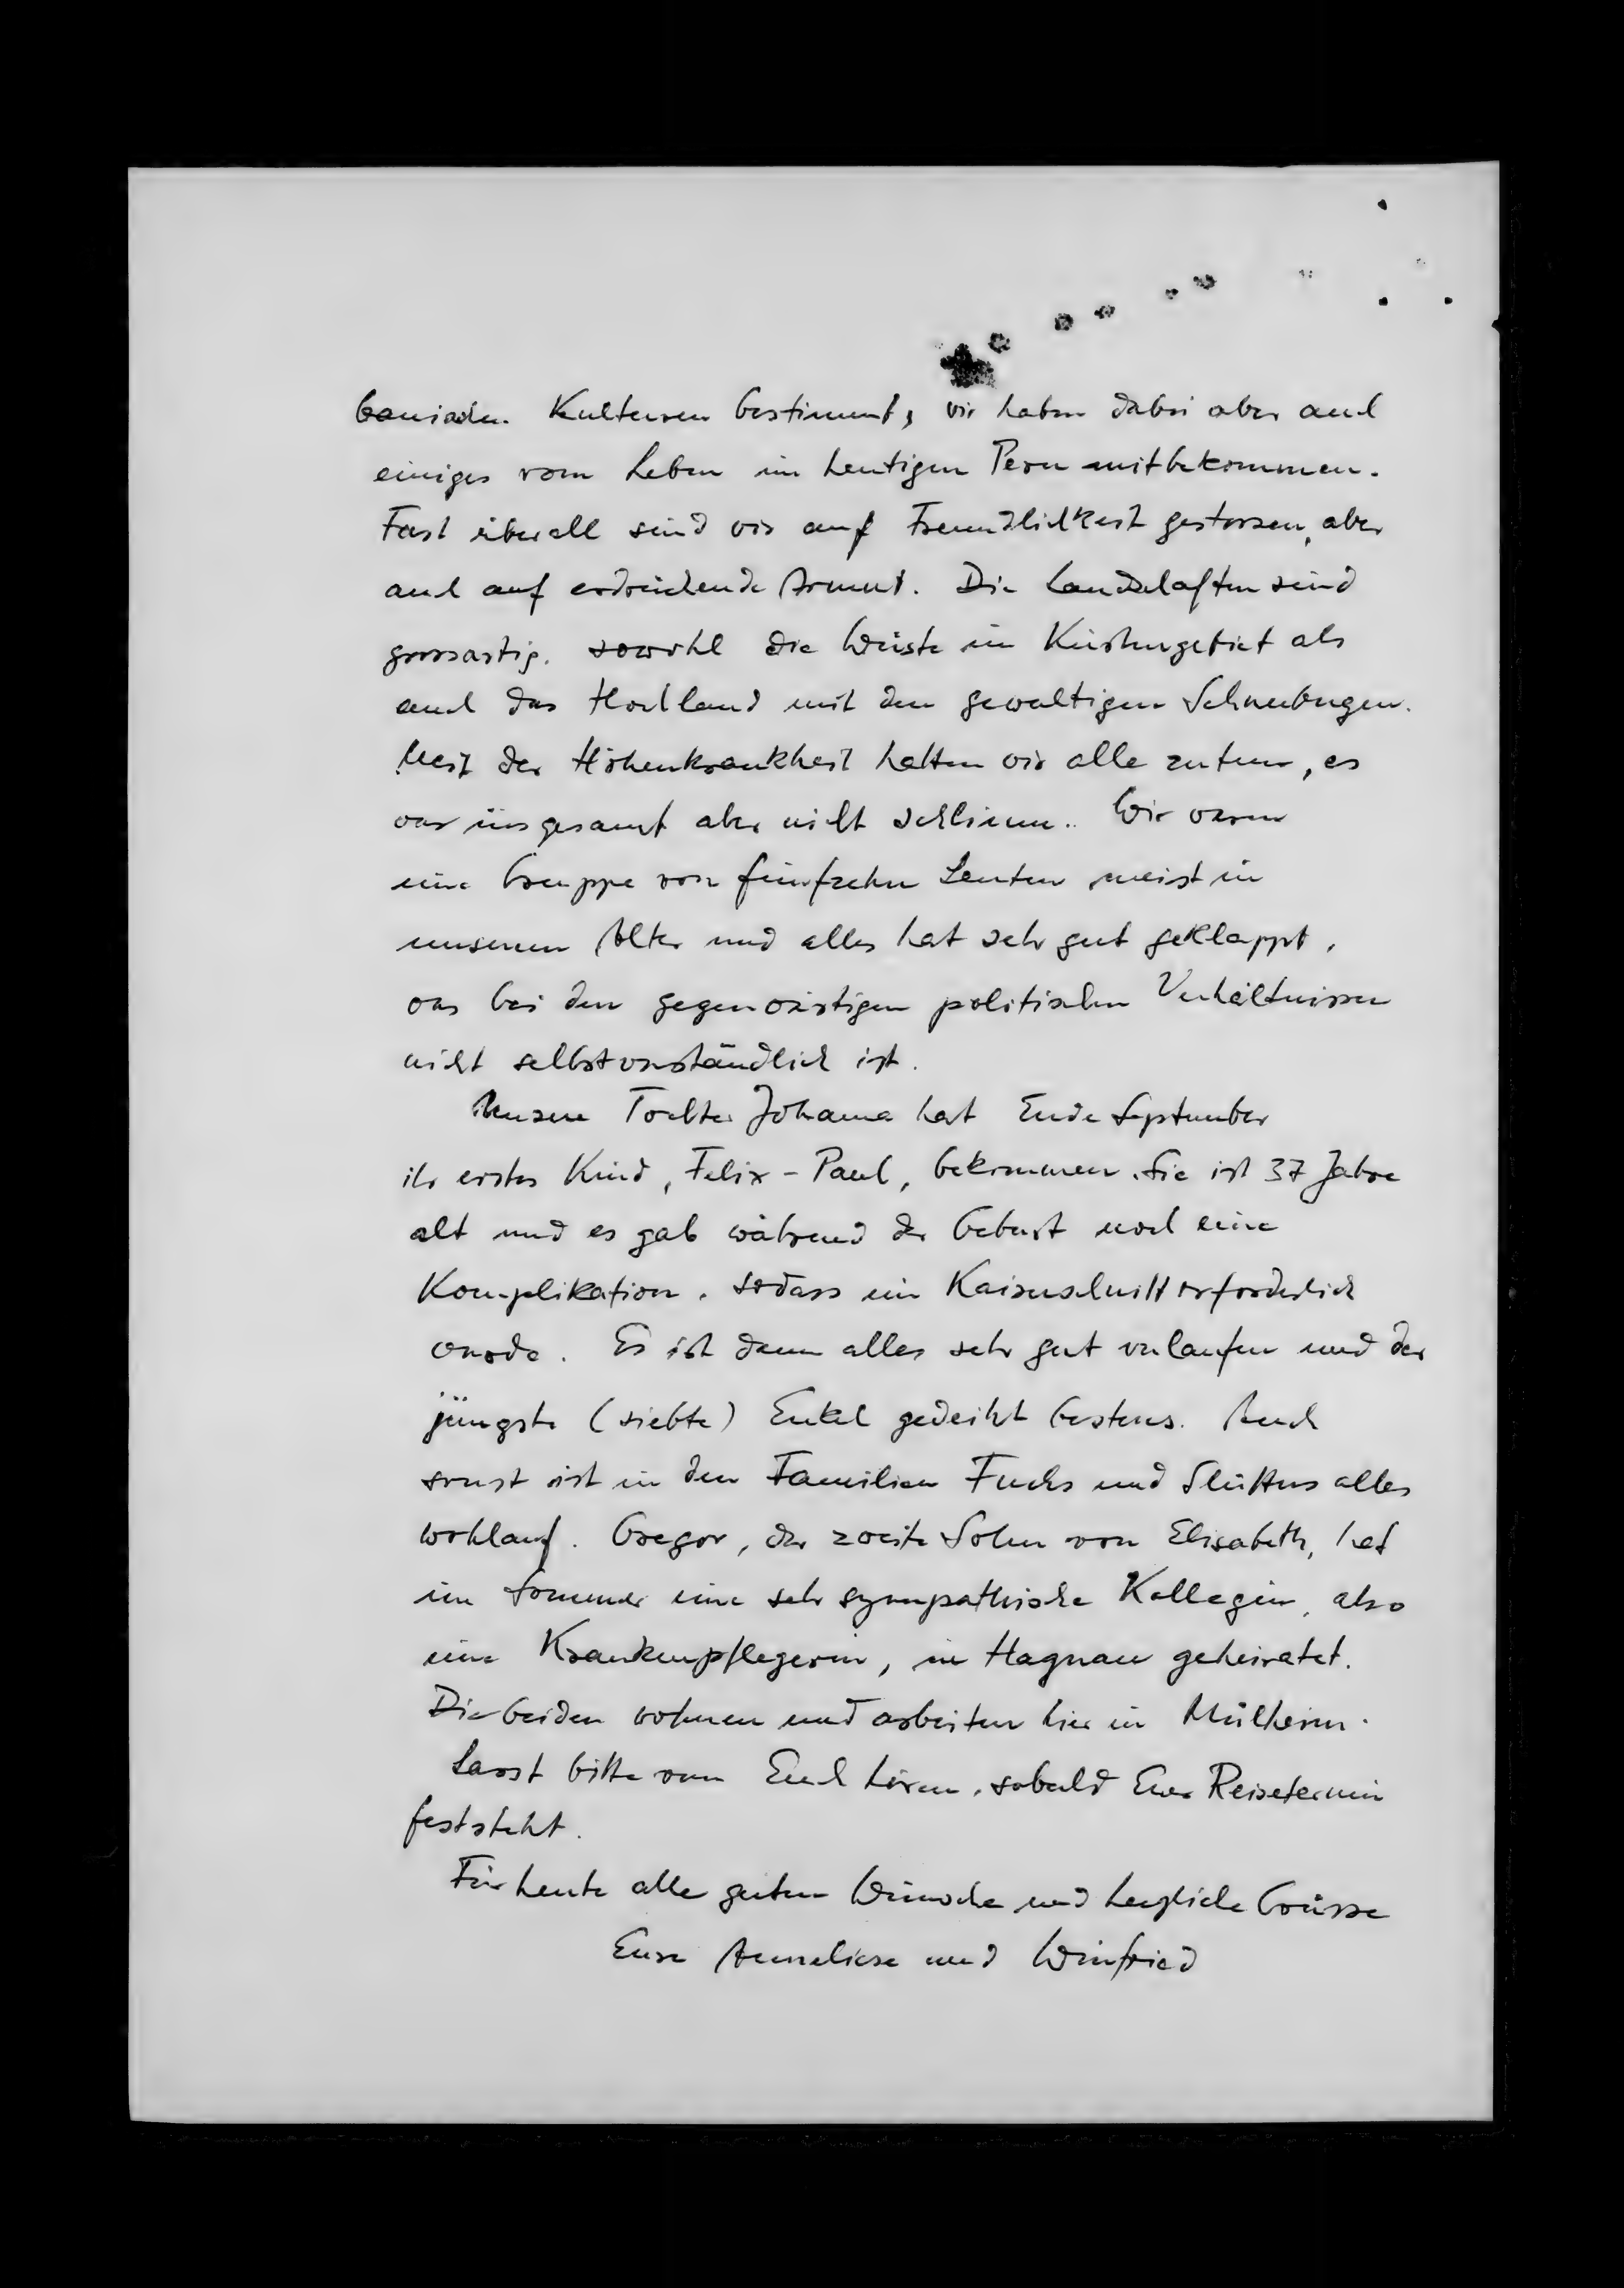 banischen Kulturen bestimmt, wir haben dabei aber auch
einiges vom Leben im heutigen Peru mitbekommen.
Fast überall sind wir auf Freundlichkeit gestossen, aber
auch auf erdrückende Armut. Die Landschaften sind
grossartig, sowohl die Wüste im Küstengebiet als
auch das Hochland mit den gewaltigen Schneebergen.
Mit der Höhenkrankheit hatten wir alle zutun, es
war insgesamt aber nicht schlimm. Wir waren
eine Gruppe von fünfzehn Leuten meist in
unserem Alter und alles hat sehr gut geklappt,
was bei den gegenwärtigen politischen Verhältnissen
nicht selbstverständlich ist.
Unsere Tochter Johanna hat Ende September
ihr erstes Kind, Felix-Paul, bekommen. Sie ist 37 Jahre
alt und es gab während der Geburt noch eine
Komplikation, sodass ein Kaiserschnitt erforderlich
wurde. Es ist dann alles sehr gut verlaufen und der
jüngste (siebte) Enkel gedeiht bestens. Auch
sonst ist in den Familien Fuchs und alles
wohlauf. Gregor, der zweite Sohn von Elisabeth, hat
im Sommer eine sehr sympathische Kollegin, also
eine Krankenpflegerin, in Hagnau geheiratet.
Die beiden wohnen und arbeiten hier in Mülheim.
Lasst bitte von Euch hören, sobald Euer Reisetermin
feststeht.
Für heute alle guten Wünsche und herzliche Grüsse
Eure Anneliese und Winfried